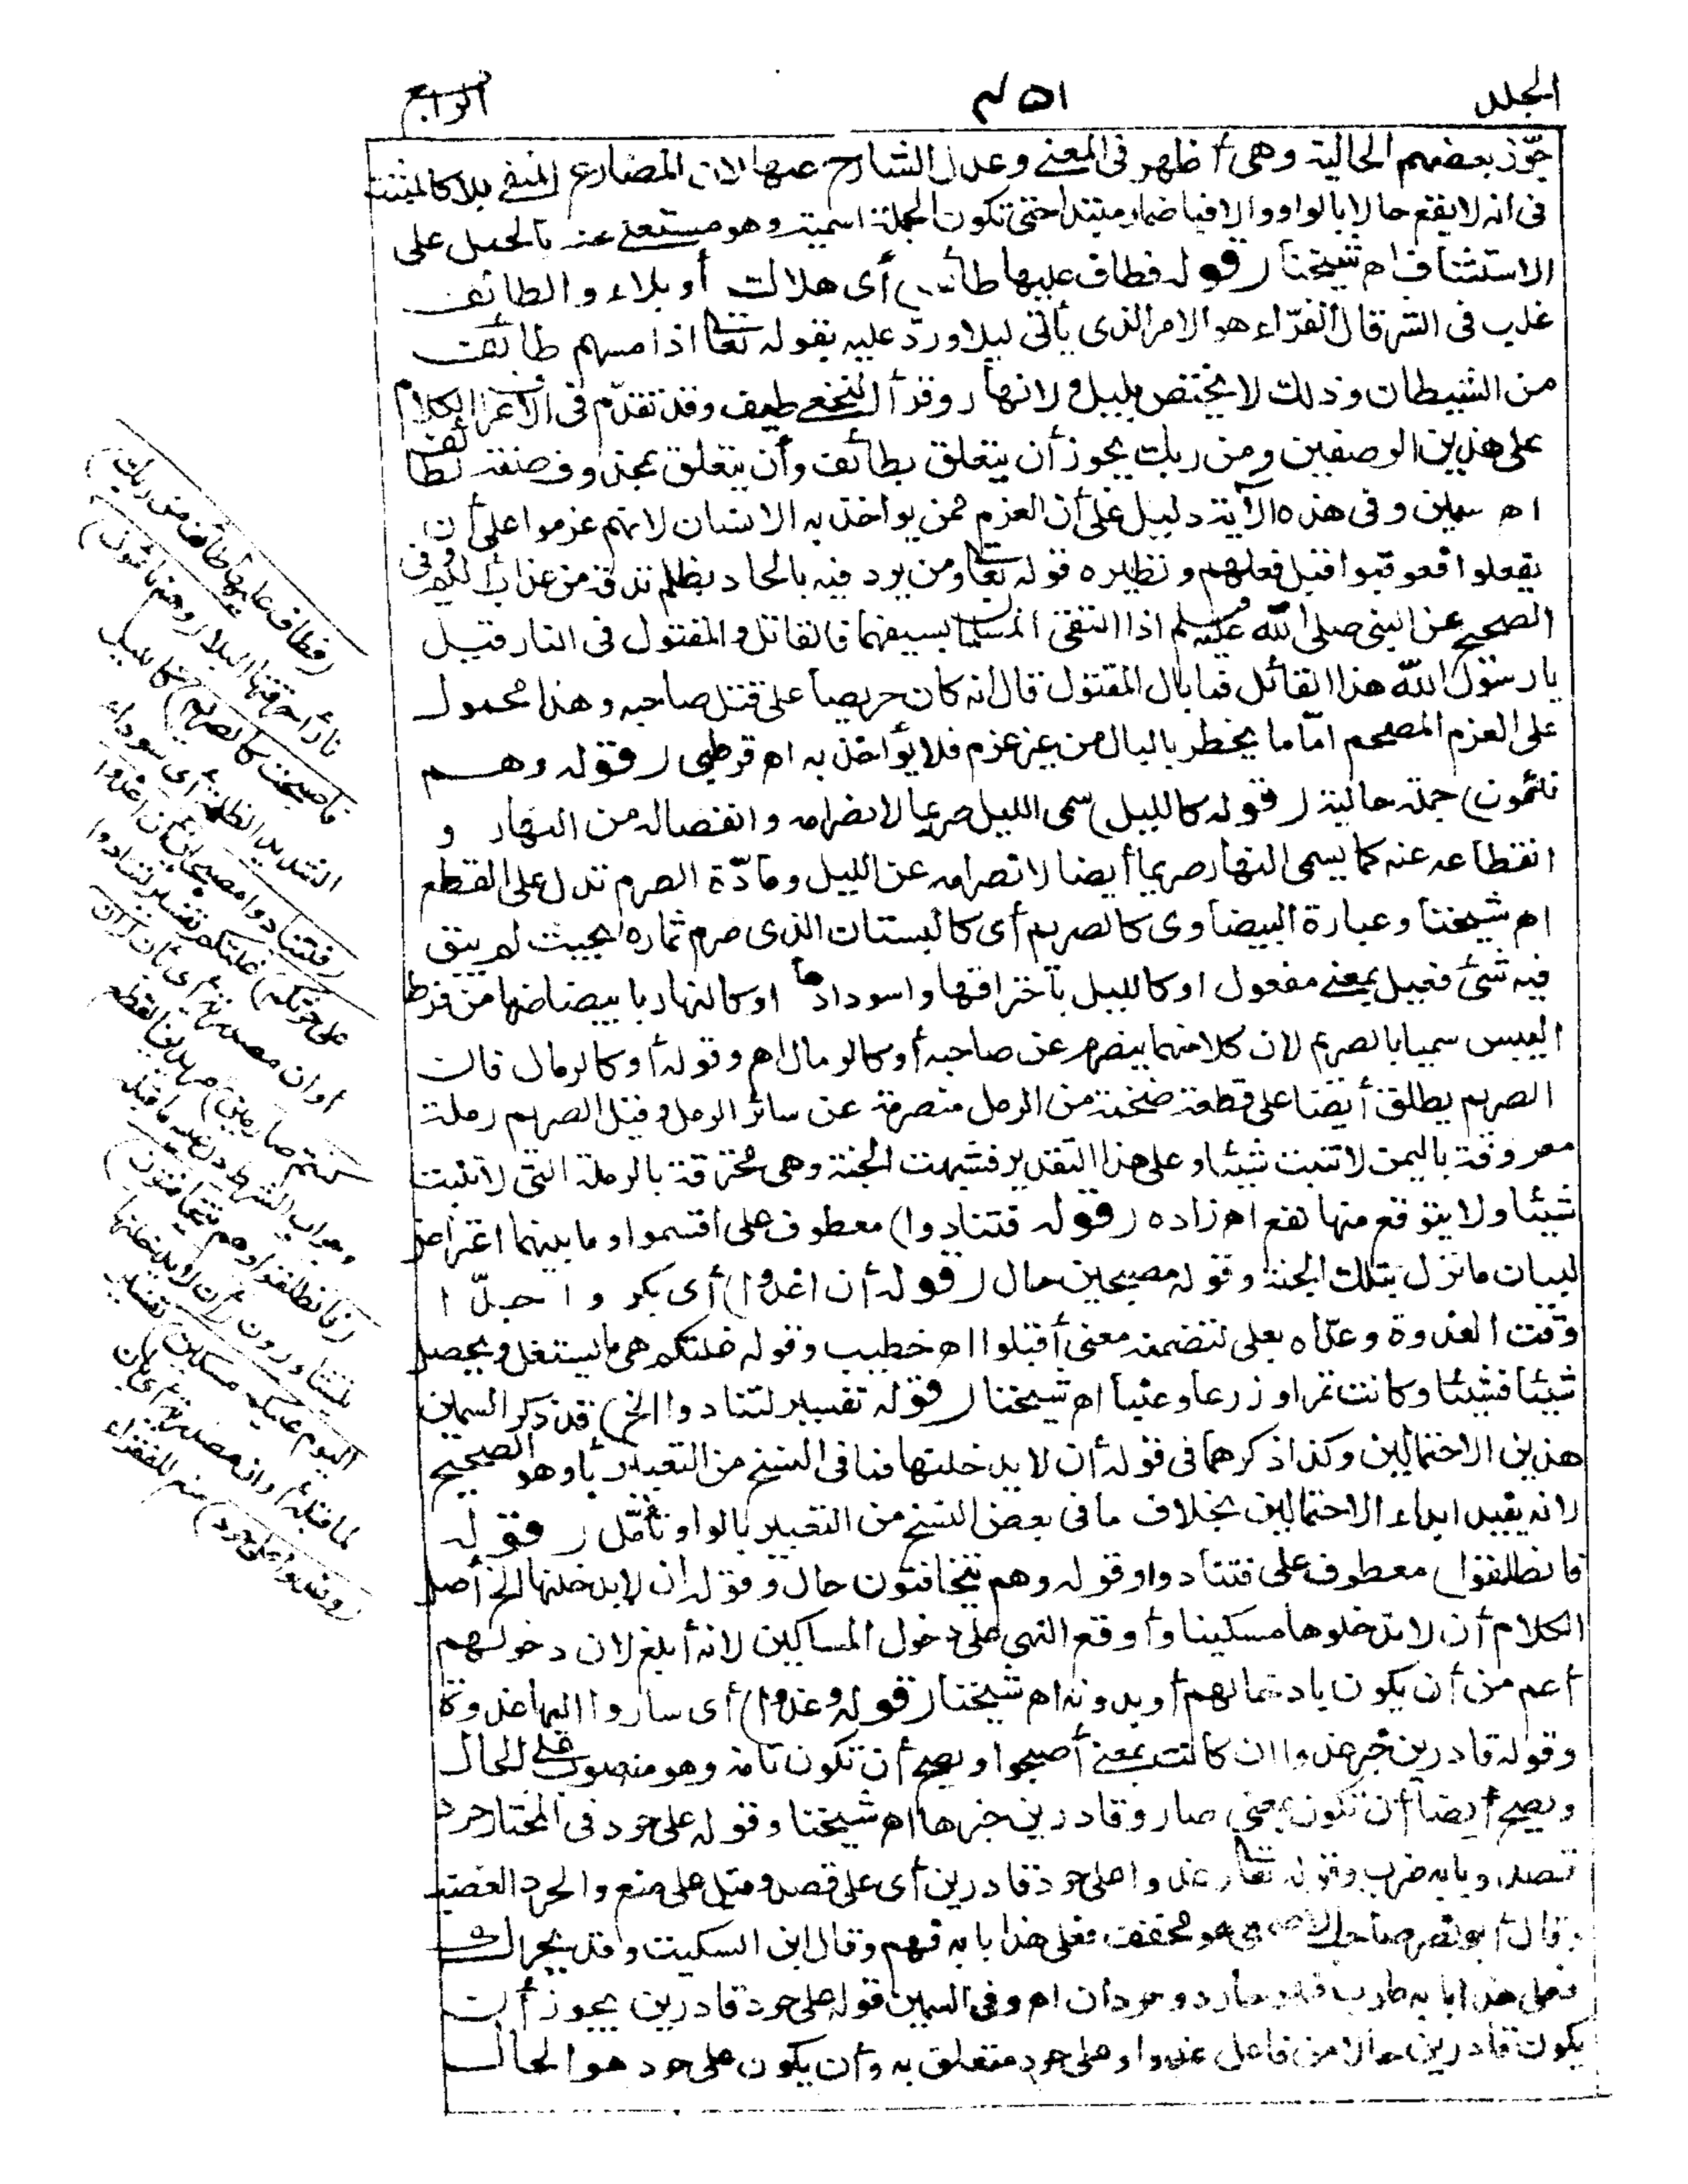 الجلد
٤٥١
الرابع
جوّز بعضهم الحالية وهى أظهر فى المعنى وعدل الشارح عنها لان المضارع المنفى بلا كالمثبت
فى انه لا يقع حالا بالواو الا فياضمار مبتدا حتى تكون الجملة اسمية وهو مستغنى عنه بالحمل على
الاستئناف اه شيخنا (قوله فطاف عليها طائف) أى هلاك أو بلاء والطائف
غلب فى الشر قال الفرّاء هو الامر الذى يأتى ليلا وردّ عليه بقوله تعالى اذا مسهم طائف
من الشيطان وذلك لا يختص بليل ولا نهار وقرأ النخعى طيف وقد تقدّم فى الاعراف الكلام
على هذين الوصفين ومن ربك يجوز أن يتعلق بطائف وأن يتعلق بمحذوف صفة لطائف
اه سمين وفى هذه الآية دليل على أن العزم ممن يواخذ به الانسان لانهم عزموا على أن
يفعلوا فعوقبوا قبل فعلهم ونظيره قوله تعالى ومن يرد فيه بالحاد بظلم نذقه من عذاب أليم وفى
الصحيح عن النبى صلى الله عليه وسلم اذا التقى المسلمان بسيفهما فالقاتل والمقتول فى النار قيل
يا رسول الله هذا القاتل فما بال المقتول قال انه كان حريصا على قتل صاحبه وهذا محمول
على العزم المصمم امّا ما يخطر بالبال من غير عزم فلا يؤاخذ به اه قرطبى (قوله وهم
نائمون) جملة حالية (قوله كالليل) سمى الليل صريما لانصرامه وانفصاله من النهار و
انقطاعه عنه كما يسمى النهار صريما أيضا لانصرامه عن الليل ومادّة الصرم تدل على القطع
اه شيخنا وعبارة البيضاوى كالصريم أى كالبستان الذى صرم ثماره بحيث لم يبق
فيه شئ فعيل بمعنى مفعول او كالليل باحتراقها واسودادها او كالنهار بابيضاضها من فرط
اليبس سميا بالصريم لان كلا منهما ينصرم عن صاحبه أو كالرمال اه وقوله أو كالرمال فان
الصريم يطلق أيضا على قطعة ضخمة من الرمل منصرمة عن سائر الرمل وقيل الصريم رملة
معروفة باليمن لا تنبت شيئا وعلى هذا التقدير فشبهت الجنة وهى محترقة بالرملة التى لا تنبت
شيئا ولا يتوقع منها نفع اه زاده (قوله فتنادوا) معطوف على اقسموا وما بينهما اعتراض
لبيان ما نزل بتلك الجنة وقوله مصبحين حال (قوله أن اغدوا) أى بكروا
وقت الغدوة وعدّاه بعلى لتضمنه معنى أقبلوا اه خطيب وقوله غلتكم هى ما يستغل ويحصل
شيئا فشيئا وكانت ثمرا وزرعا وعنبا اه شيخنا (قوله تفسير لتنادوا الخ) قد ذكر السمين
هذين الاحتمالين وكذا ذكرهما فى قوله أن لا يدخلنها فما فى النسخ من التعبير بأو هو الصحيح
لانه يفيد ابداء الاحتمالين بخلاف ما فى بعض النسخ من التعبير بالواو تأمّل (قوله
فانطلقوا) معطوف على فتنادوا وقوله وهم يتخافتون حال وقوله ان لا يدخلنها الخ أصل
الكلام أن لا تدخلوها مسكينا وأوقع النهى على دخول المساكين لانه أبلغ لان دخولهم
أعم من أن يكون بادخالهم أو بدونه اه شيخنا (قوله وغدوا) أى ساروا اليها غدوة
وقوله قادرين خبر غدوا ان كانت بمعنى أصبحوا ويصح أن تكون تامة وهو منصوب على الحال
ويصح أيضا أن تكون بمعنى صار وقادرين خبرها اه شيخنا وقوله على حرد فى المختار حرد
قصد وبابه ضرب وقوله تعالى وغدوا على حرد قادرين أى على قصد وقيل على منع والحرد الغضب
وقال أبو نصر صاحب الاصمعى هو مخفف فعلى هذا بابه فهم وقال ابن السكيت وقد يحرك
فعلى هذا بابه طرب فهو حارد وحردان اه وفى السمين قوله على حرد قادرين يجوز أن
يكون قادرين حالا من فاعل غدوا وعلى حرد متعلق به وأن يكون على حرد هو الحال
(فطاف عليها طائف من ربك)
نارأحرقتها ليلا (وهم نائمون)
فأصبحت كالصريم) كالليل
الشديد الظلمة أى سوداء
(فتنادوا مصبحين أن اغدوا
على حرثكم) غلتكم تفسير لتنادوا
أو ان مصدرية أى بأن (ان
كنتم صارمين) مريدين القطع
وجواب الشرط دل عليه ما قبله
(فانطلقوا وهم يتخافتون)
يتشاورون (أن لا يدخلنها
اليوم عليكم مسكين) تفسير
لما قبله أو ان مصدرية أى بأن
(وغدوا على حرد) منع للفقراء